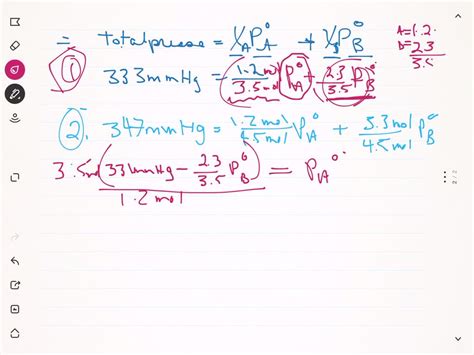 = Total pressure = X_A P_A° + X_B P_B°
A = 1.2
B = 2.3
3.5
① 333 mmHg = (1.2 mol / 3.5 mol) P_A° + (2.3 / 3.5) P_B°
②. 347 mmHg = (1.2 mol / 4.5 mol) P_A° + (3.3 mol / 4.5 mol) P_B°
3.5 mol (333 mmHg - (2.3 / 3.5) P_B°) / 1.2 mol = P_A°